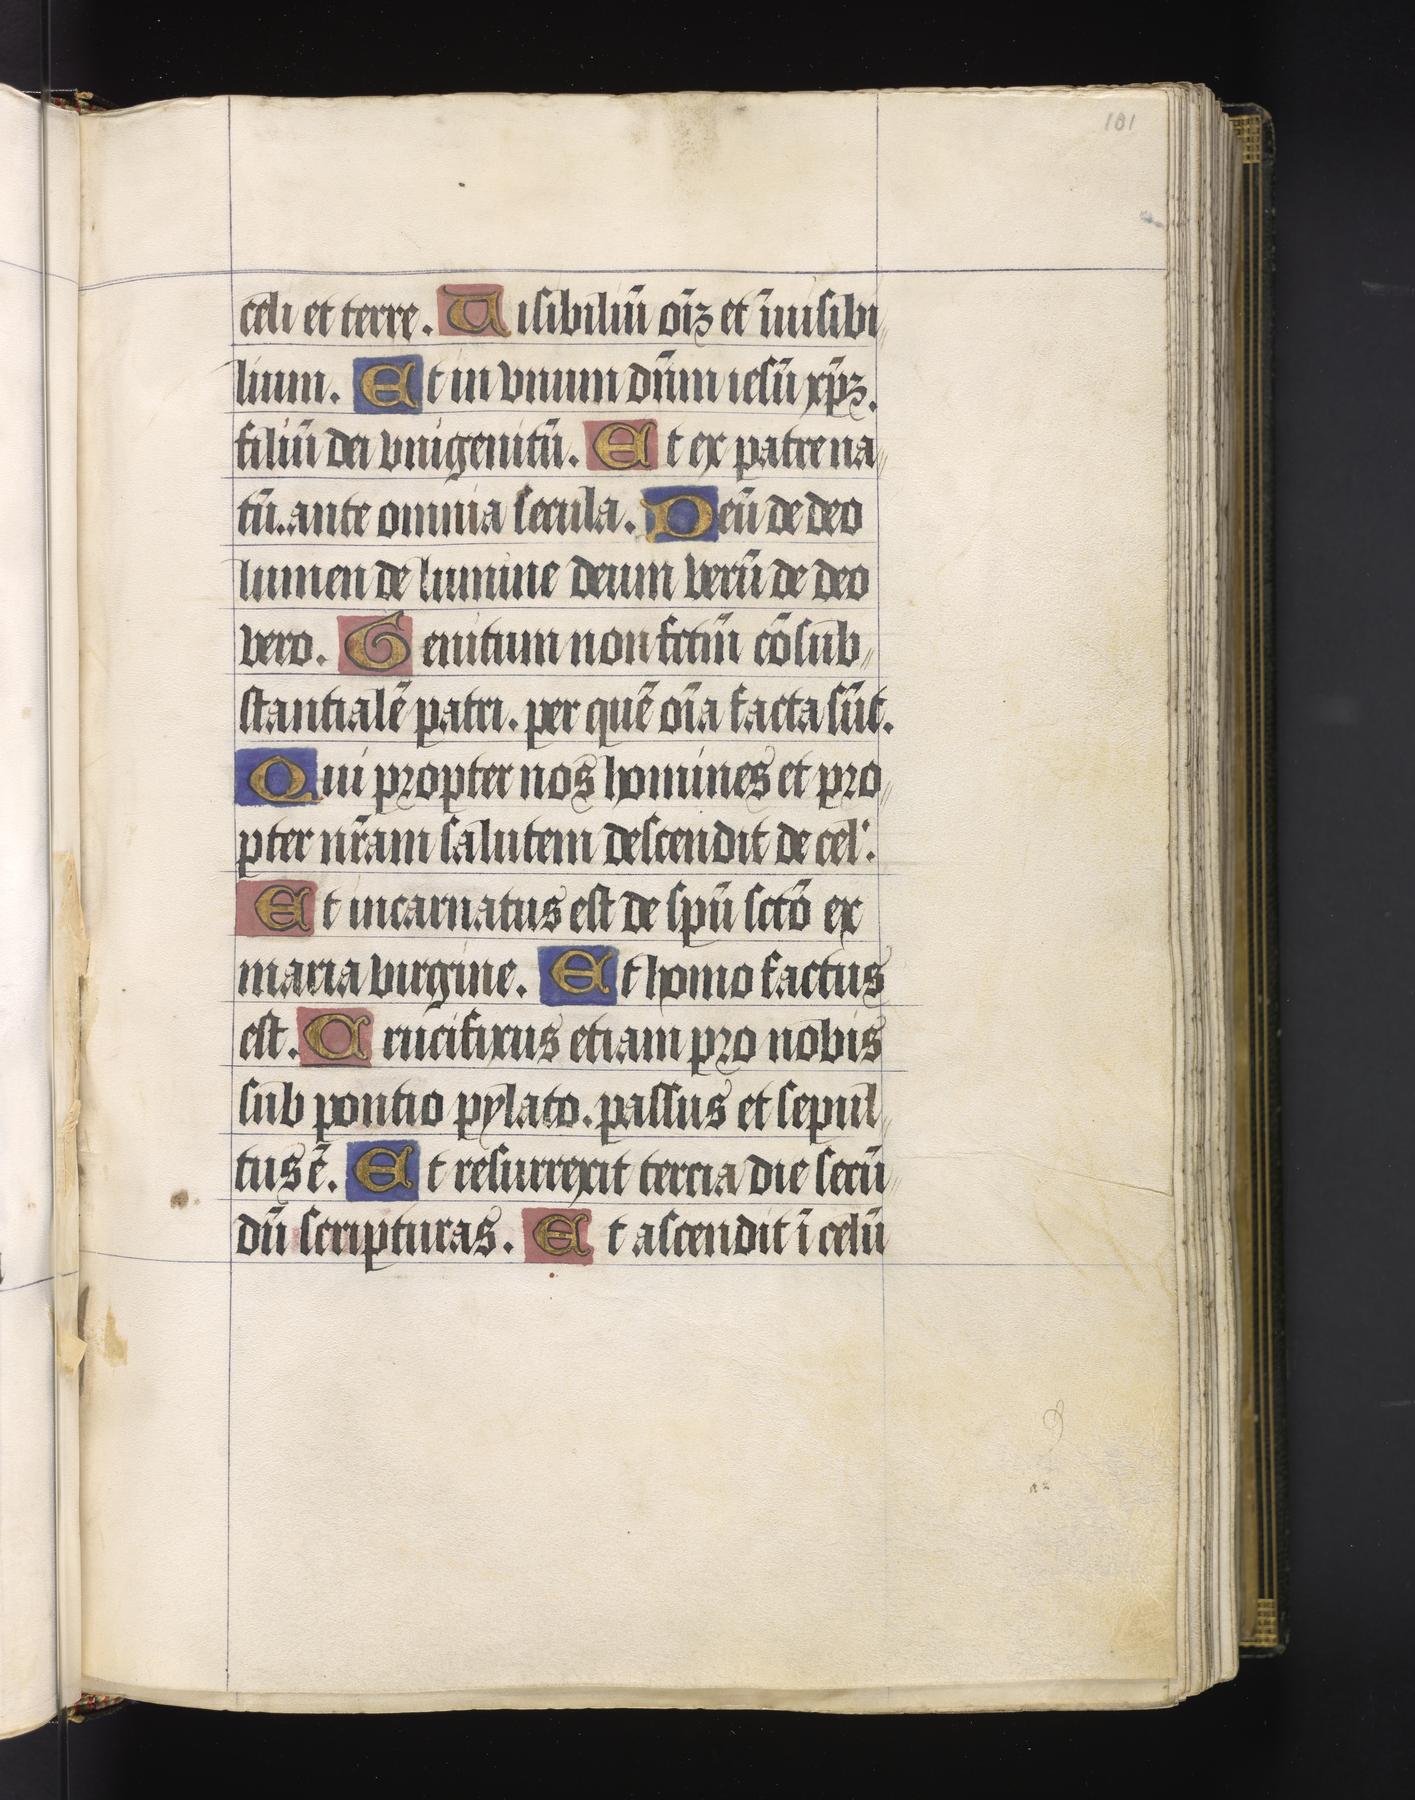 101
celi et terre. Uisibiliū oīꝫ et īuisibi〃
lium. Et in vnum dn̄m iesū xp̄ꝫ.
filiū dei vnigenitū. Et ex patre na〃
tū. ante omnia secula. Deū de deo
lumen de lumine deum verū de deo
vero. Genitum non fctm̄ cōsub〃
stantialē patri. per quē oīa facta sūt.
Qui propter nos homines et pro〃
pter nr̄am salutem descendit de cel'.
Et incarnatus est de spū sctō ex
maria virgine. Et homo factus
est. Crucifixus etiam pro nobis
sub pontio pylato. passus et sepul〃
tus ē. Et resurrexit tercia die secū〃
dū scripturas. Et ascendit ī celū